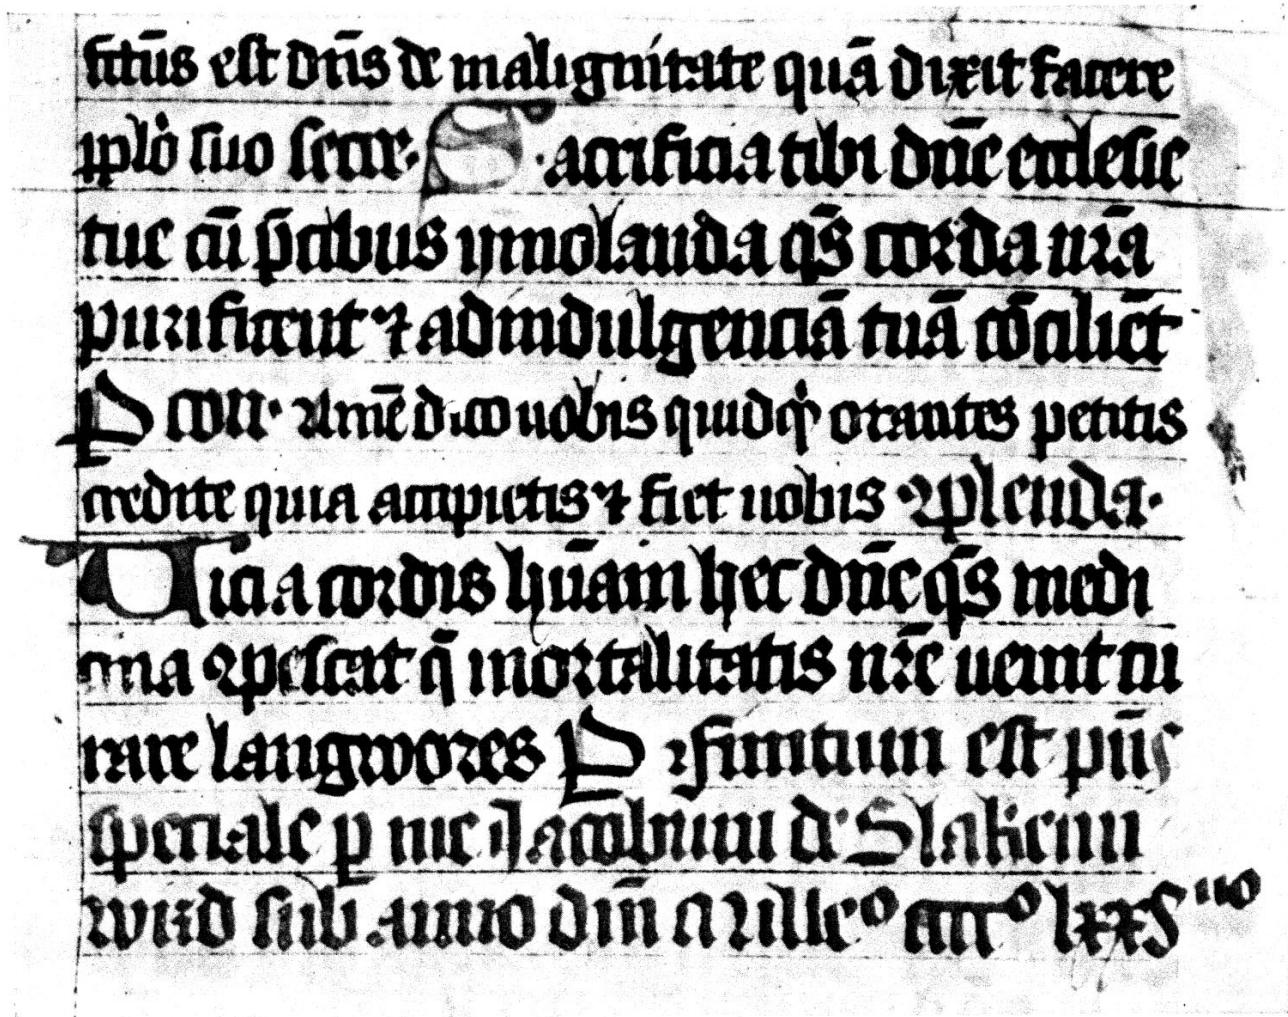 fitū̄s est dn̄s de malignitate quā dixit facere
pplo suo secr. Sacrificia tibi dn̄e ecclesie
tue cū p̄cibus ymolanda qs̄ corda nr̄a
purificent ⁊ ad indulgenciā tuā cōciliēt
P con. Amē dico uobis quidqͥ orantes petitis
credite quia accipietis ⁊ fiet uobis ꝯplenda.
Uicia cordis hūain hec dn̄e qs̄ medi
cina ꝯpescat q̄ mortalitatis nr̄e ueint cu
rare langwores P ꝛfinitum est pn̄s
speciale p me Jacobum de Slakenu
werd sub anno dm̄ Mille° ccc° lxxS